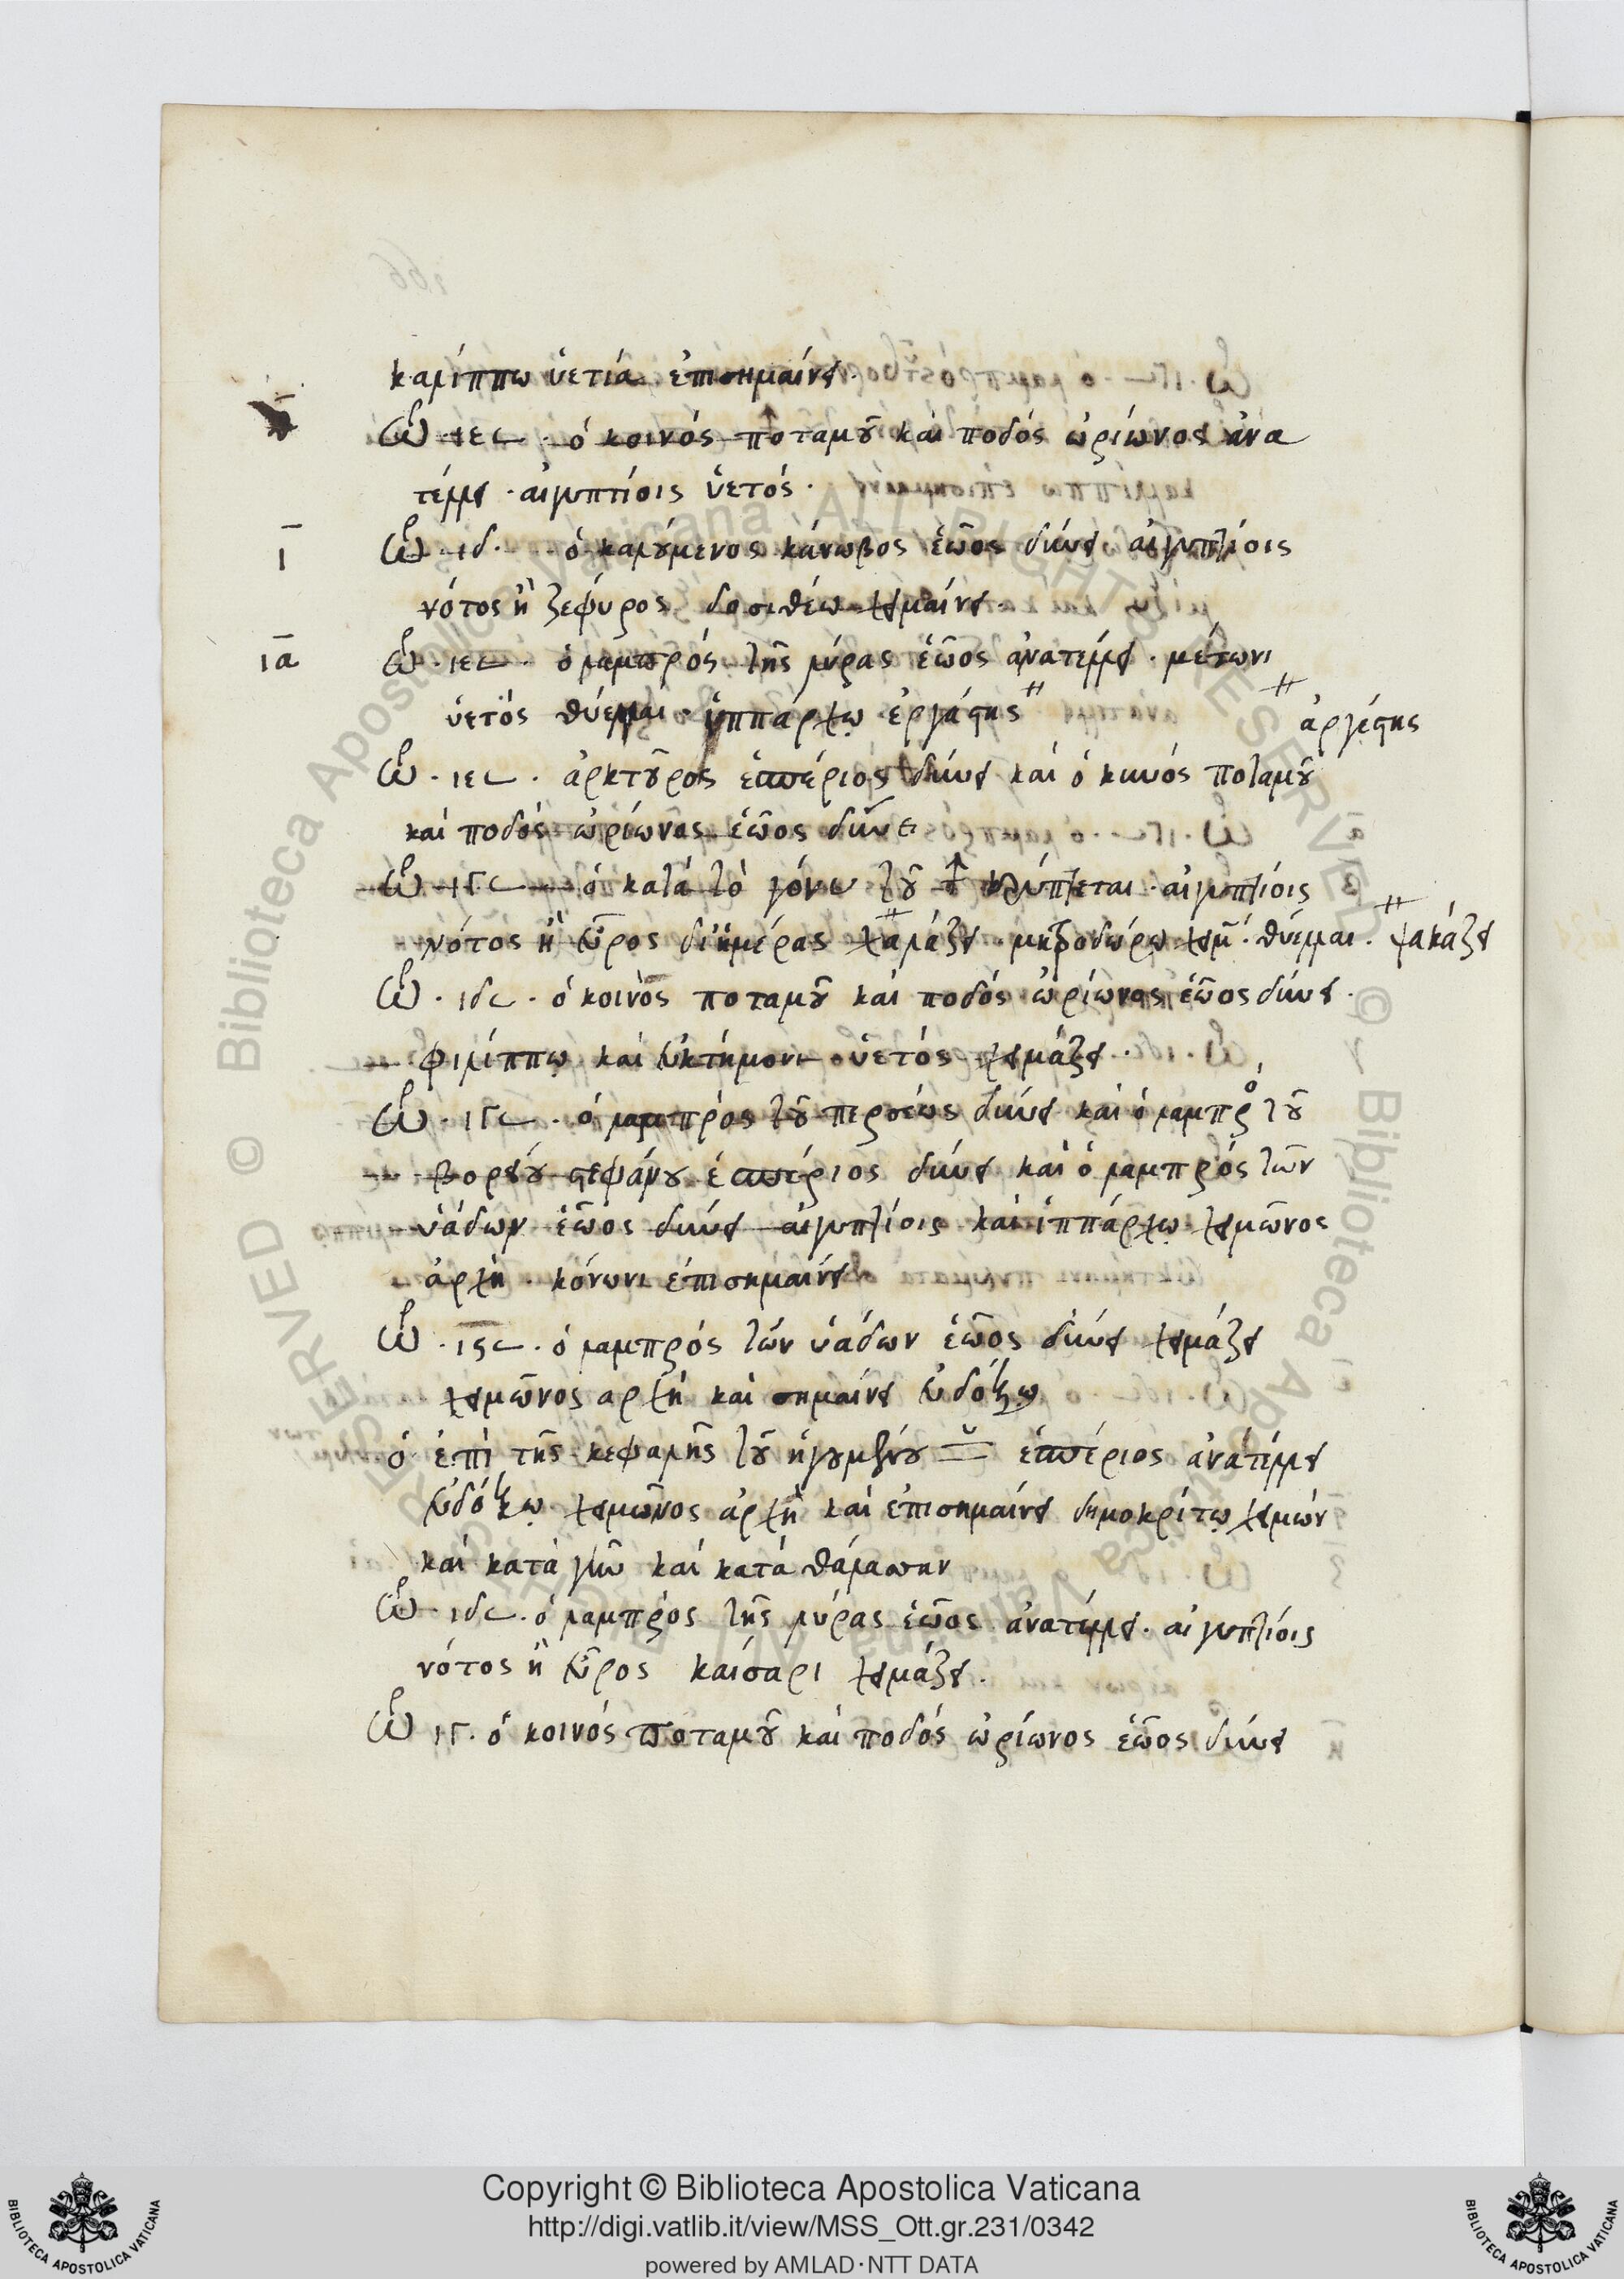 καλίππω ὑετία ἐπισημαίνει.
ὥρ ιε 𐅵 . ὁ κοινός ποταμοῦ καὶ ποδός ὠρίωνος ἀνα
τέλλει . αἰγυπτίοις ὑετός .
ῑ ὥρ . ιδ . ὁ καλούμενος κάνωβος ἑῶος δύνει αἰγυπτίοις
νότος ἢ ζεφυρος δοσιθέω χειμαίνει .
ιᾱ ὥρ . ιε 𐅵 . ὁ λαμπρός τῆς λύρας ἑῶος ἀνατέλλει . μέτωνι
ὑετός θύελλαι . ἱππάρχῳ ἐργάστης // // ἀργέστης
ὥρ . ιε 𐅵 . ἀρκτοῦρος ἑσπέριος δύνει καὶ ὁ κοινός ποταμοῦ
καὶ ποδός ὠρίωνος ἑῶος δύνει
ὥρ ιγ 𐅵 ὁ κατά τὸ γόνυ τοῦ ♐ κρύπτεται . αἰγυπτίοις
νότος ἢ εὖρος δι ἡμέρας χαλάζει // . μητροδώρῳ χειμ . θύελλαι . // ψακάζει
ὥρ . ιδ 𐅵 . ὁ κοινὸς ποταμοῦ καὶ ποδός ὠρίωνος ἑῶος δύνει .
φιλίππῳ καὶ εὐκτήμονι ὑετός χειμάζει .
ὥρ . ιγ 𐅵 . ὁ λαμπρὸς τοῦ περσέως δύνει καὶ ὁ λαμπρὸ τοῦ
βορείου στεφάνου ἑσπέριος δύνει καὶ ὁ λαμπρός τῶν
ὑάδων ἑῶος δύνει αἰγυπτίοις καὶ ἱππάρχῳ χειμῶνος
ἀρχή . κόνωνι ἐπισημαίνει
ὥρ . ιϛ 𐅵 . ὁ λαμπρός τῶν ὑάδων ἑῶος δύνει χειμάζει
χειμῶνος αρχή καὶ σημαίνει εὐδόξῳ
ὁ ἐπὶ τῆς κεφαλῆς τοῦ ἡγουμένου ἑσπέριος ἀνατέλλει
εὐδόξῳ χειμῶνος ἀρχὴ καὶ ἐπισημαίνει δημοκρίτῳ χειμών
καὶ κατὰ γῆν καὶ κατὰ θάλασσην
ὥρ ιδ 𐅵 . ὁ λαμπρὸς τῆς λύρας ἑῶος ἀνατέλλει . αἰγυπτίοις
νότος ἢ εὖρος καίσαρι χειμάζει .
ὥρ ιγ . ὁ κοινός ποταμοῦ καὶ ποδός ὠρίωνος ἑῶος δύνει
Copyright © Biblioteca Apostolica Vaticana
http://digi.vatlib.it/view/MSS_Ott.gr.231/0342
powered by AMLAD·NTT DATA